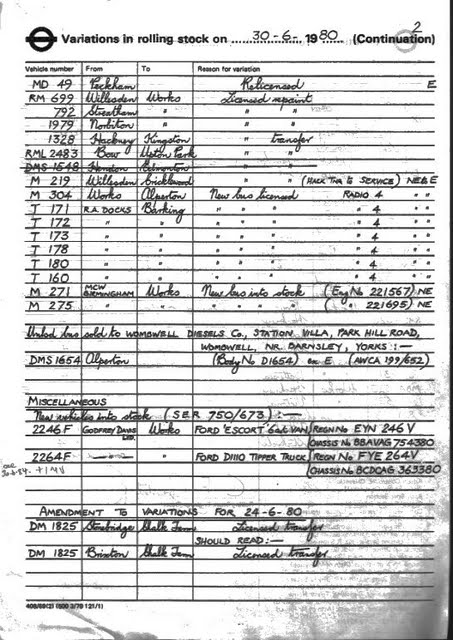 2
Variations in rolling stock on 30-6- 1980 (Continuation)
Vehicle number From To Reason for variation
MD 49 Peckham Relicensed E
RM 699 Willesden Works Licensed repaint
792 Streatham " " "
1979 Norbiton " " "
1328 Hackney Kingston " transfer
RML 2483 Bow Upton Park " "
DMS 1648 Hendon Edmonton " "
M 219 Willesden Cricklewood " " (Hack Tng to SERVICE) NE&E
M 304 Works Alperton New bus licensed RADIO 4 " "
T 171 R.A. DOCKS Barking " " " " 4 " "
T 172 " " " " " " 4 " "
T 173 " " " " " " 4 " "
T 178 " " " " " " 4 " "
T 180 " " " " " " 4 " "
T 160 " " " " " " 4 " "
M 271 MCW BIRMINGHAM Works New bus into stock (Eng No 221567) NE
M 275 " " " " " " ( " 221695) NE
Unlicd bus sold to WOMBWELL DIESELS Co., STATION VILLA, PARK HILL ROAD,
WOMBWELL, NR. BARNSLEY, YORKS :—
DMS 1654 Alperton (Body No D1654) ex E (AWCA 199/652)
MISCELLANEOUS
New vehicles into stock (SER 750/673) :—
2246F GODFREY DAVIS LTD. Works FORD 'ESCORT' 6cwt VAN REGN No EYN 246V
CHASSIS No BBAVAG 754380
2264F " " FORD D1110 TIPPER TRUCK REGN No FYE 264V
CHASSIS No BCDCAG 363380
AMENDMENT TO VARIATIONS FOR 24-6-80
DM 1825 Stockbridge Chalk Farm Licensed transfer
SHOULD READ :—
DM 1825 Brixton Chalk Farm Licensed transfer
408/69(2) (500 3/79 121/1)